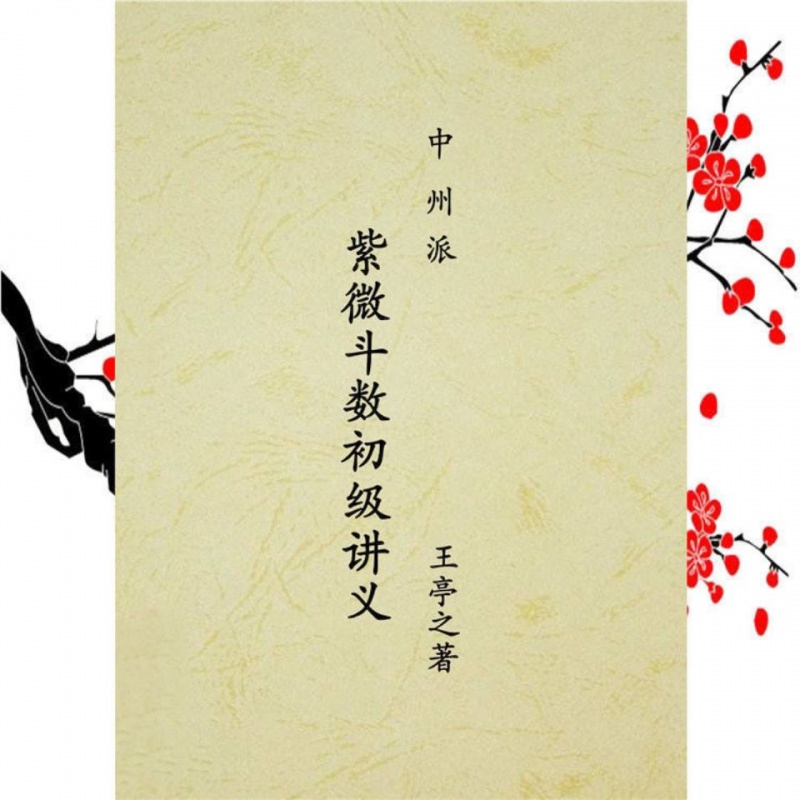 中州派
王亭之著
紫微斗数初级讲义